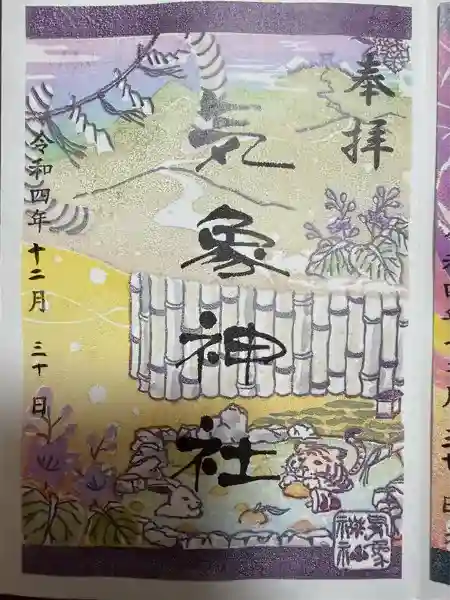 奉拝
気象神社
令和四年十二月三十日
気象神社